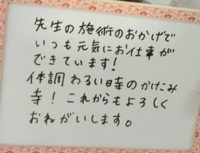 先生の施術のおかげで
いつも元気にお仕事が
できています!
体調わるい時のかけこみ
寺!これからもよろしく
おねがいします。